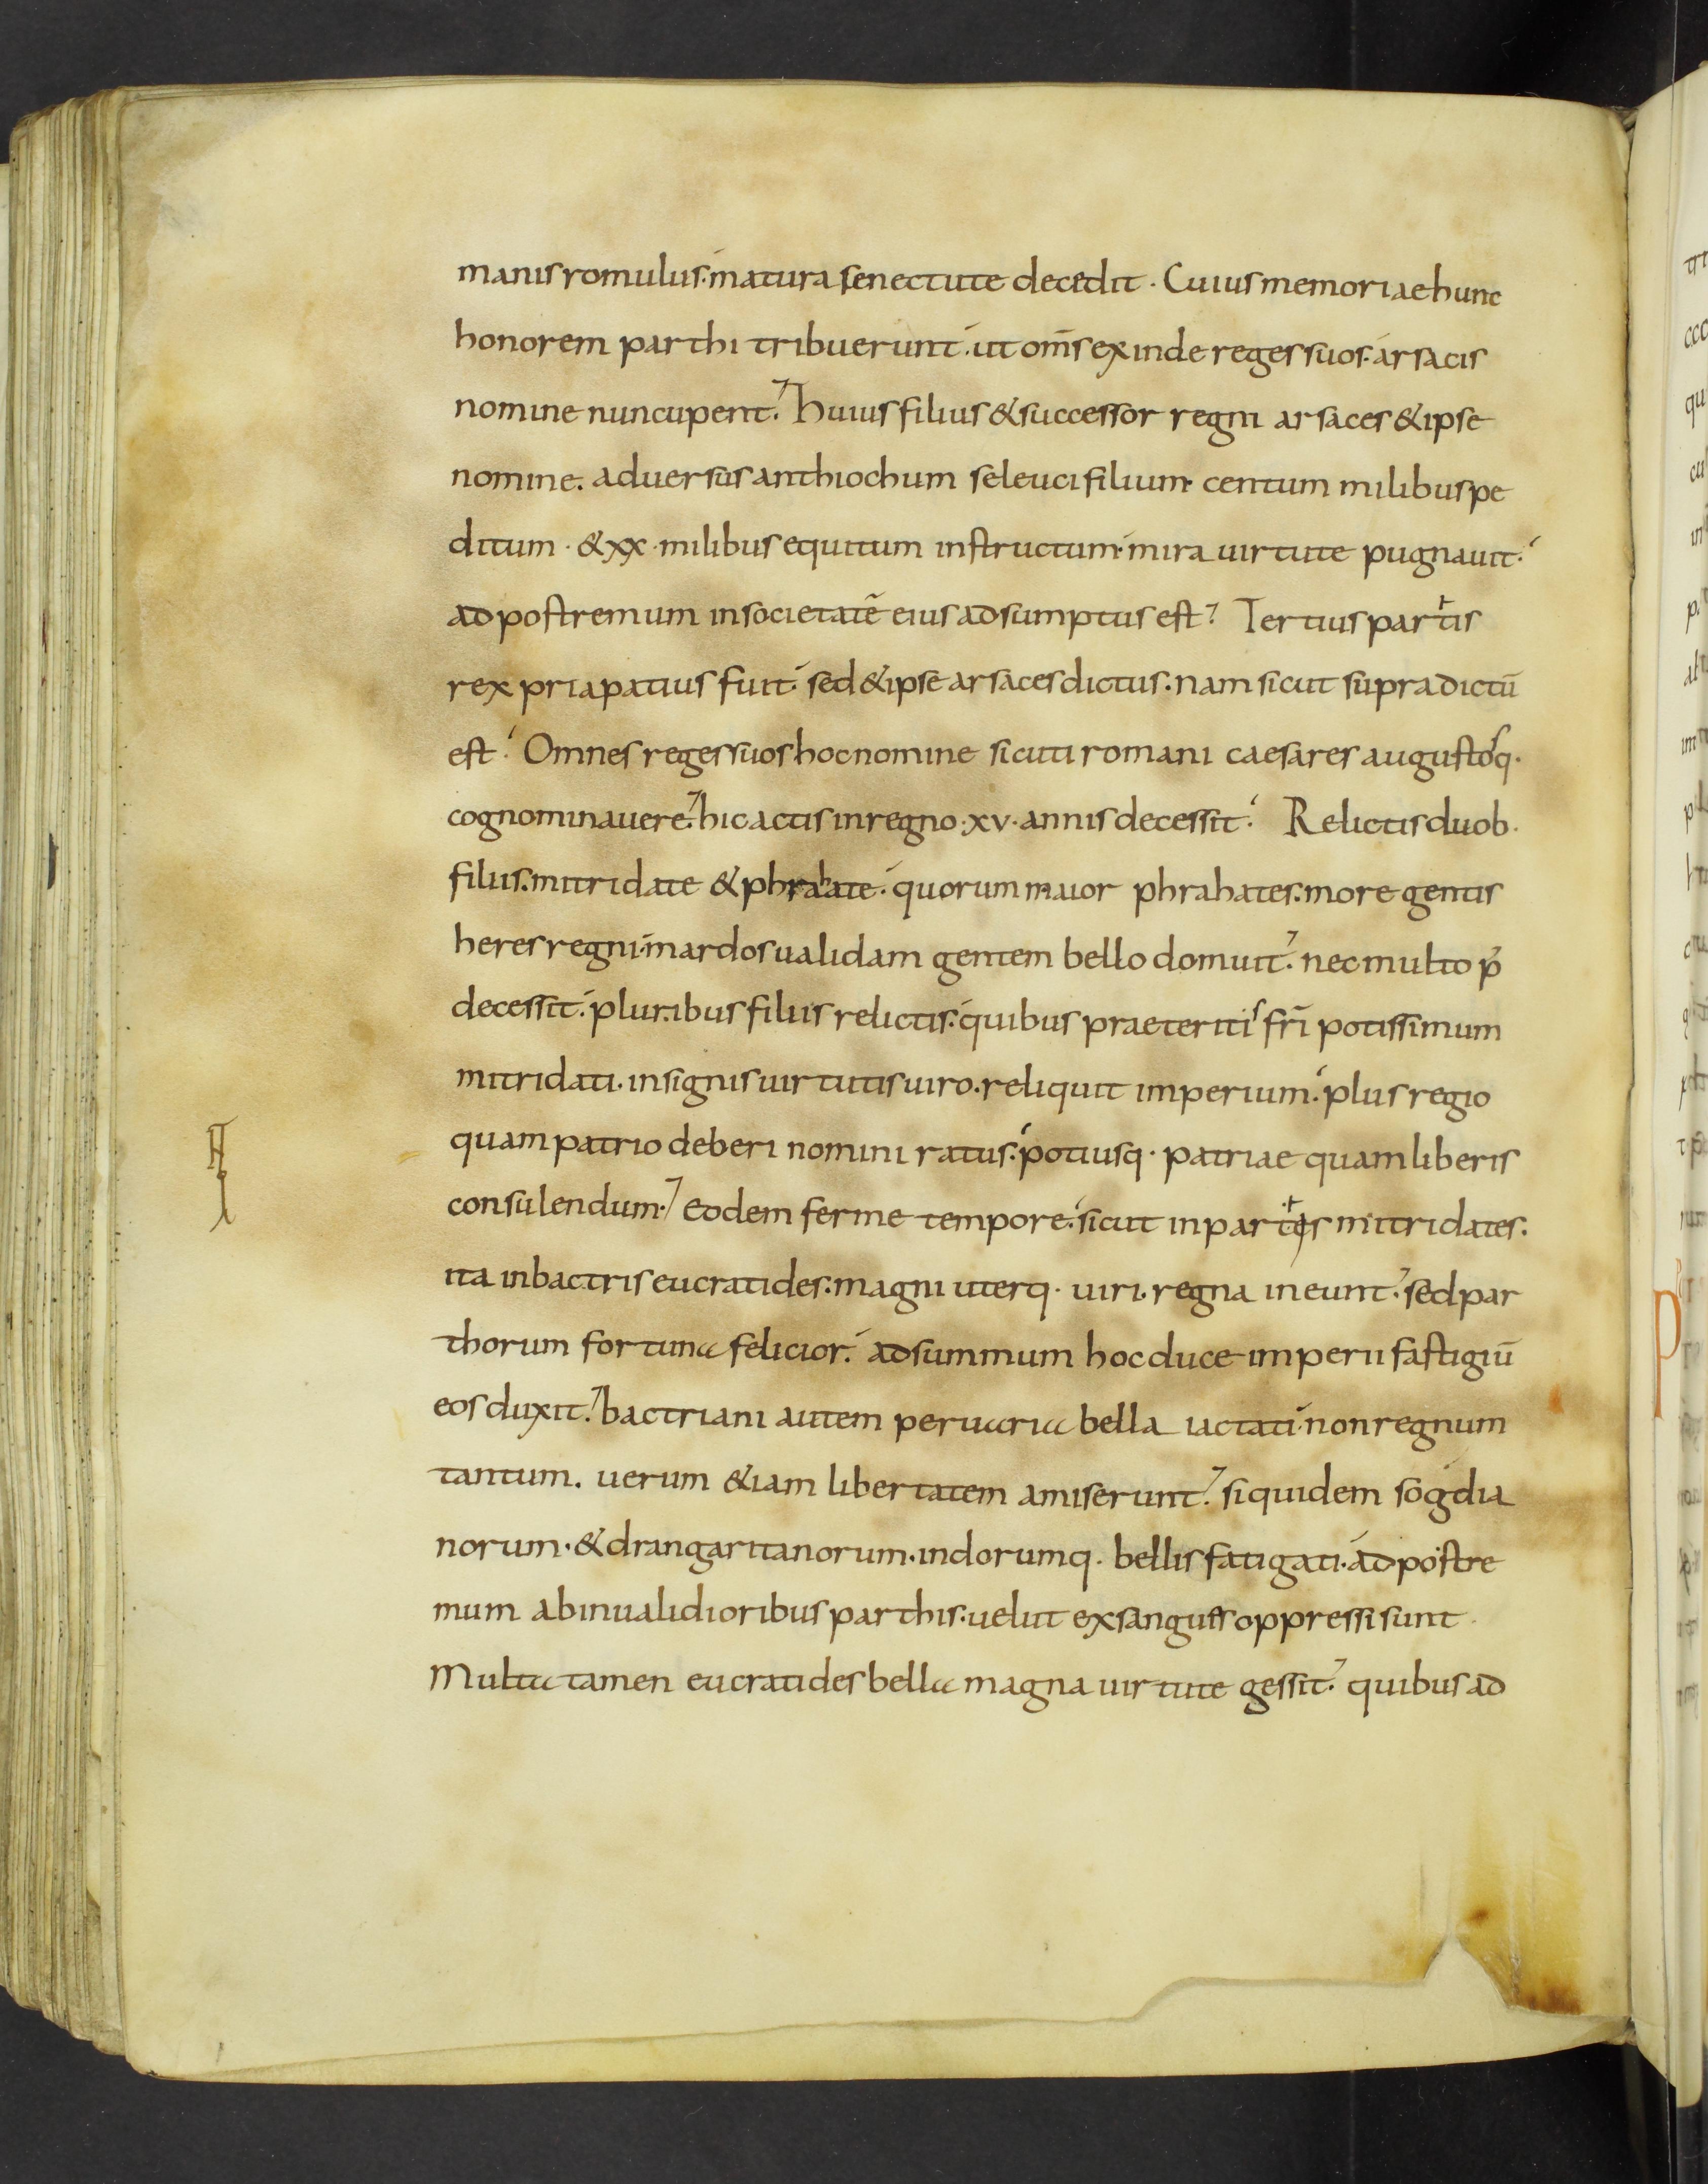 manis romulus. matura senectute decedit. Cuius memoriae hunc
honorem parthi tribuerunt. ut om̄s exinde reges suos. arsacis
nomine nuncupent. huius filius & successor regni arsaces & ipse
nomine. aduersus anthiochum seleuci filium. centum milibus pe
ditum. & xx. milibus equitum instructum. mira uirtute pugnauit.
ad postremum in societatē eius adsumptus est. Tertius partis
rex priapatius fuit. sed & ipse arsaces dictus. nam sicut supra dictū
est. Omnes reges suos hoc nomine sicuti romani caesares augustosq.
cognominauere. hic actis in regno. xv. annis decessit. Relictis duob.
filiis. mitridate & phrahate. quorum maior phrahates. more gentis
heres regni. mardos ualidam gentem bello domuit. nec multo p̄
decessit. pluribus filiis relictis. quibus praeteritis fr̄i potissimum
mitridati. insignis uirtutis uiro. reliquit imperium. plus regio
quam patrio deberi nomini ratus. potiusq. patriae quam liberis
consulendum. eodem ferme tempore. sicut in partis mitridates.
ita in bactris eucratides. magni uterq. uiri. regna ineunt. sed par
thorum fortuna felicior. ad summum hoc duce imperii fastigiū
eos duxit. bactriani autem per uaria bella iactati. non regnum
tantum. uerum & iam libertatem amiserunt. siquidem sogdia
norum. & drangaritanorum. indorumq. bellis fatigati. ad postre
mum ab inualidioribus parthis. uelut exsangues oppressi sunt.
Multa tamen eucratides bella magna uirtute gessit. quibus ad